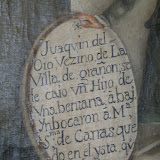 Juaquin del
Oio Vezino de La
Villa de grañon, se
le caio vn Hijo de
Vna bentana a baj
Vnbocaron a Mª
Sª de Cañas, que
do en el vota, qu